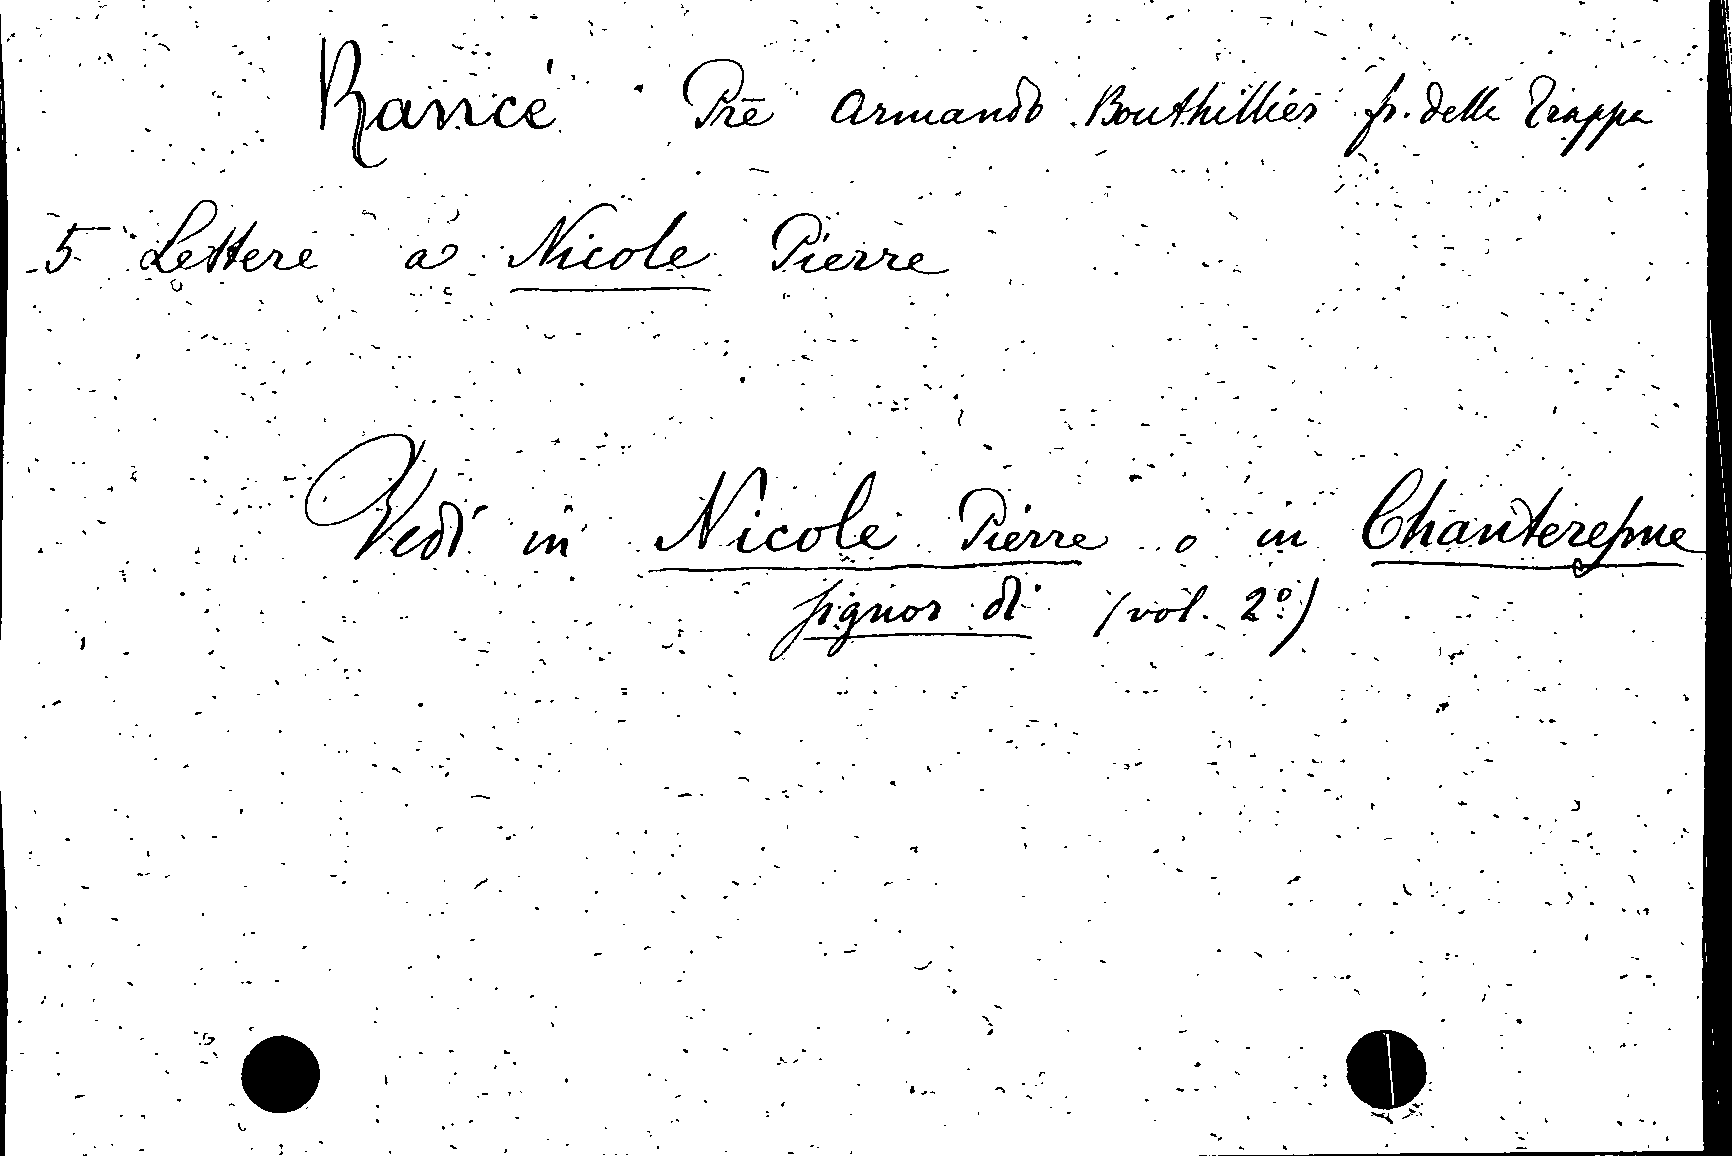 Rancé Prē Armando Bouthillier fr. della Trappa
5 Lettere a Nicole Pierre
Vedi in Nicole Pierre o in Chanteresme
signor di (vol. 2º)